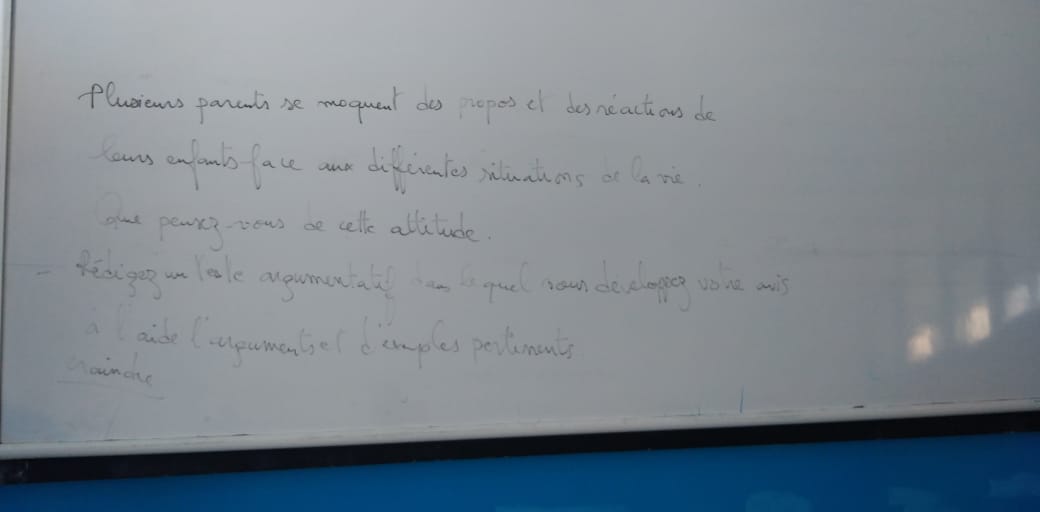 Plusieurs parents se moquent des propos et des réactions de
leurs enfants face aux différentes situations de la vie.
Que pensez-vous de cette attitude.
- Rédigez un texte argumentatif dans lequel vous développez votre avis
à l'aide d'arguments et d'exemples pertinents.
craindre